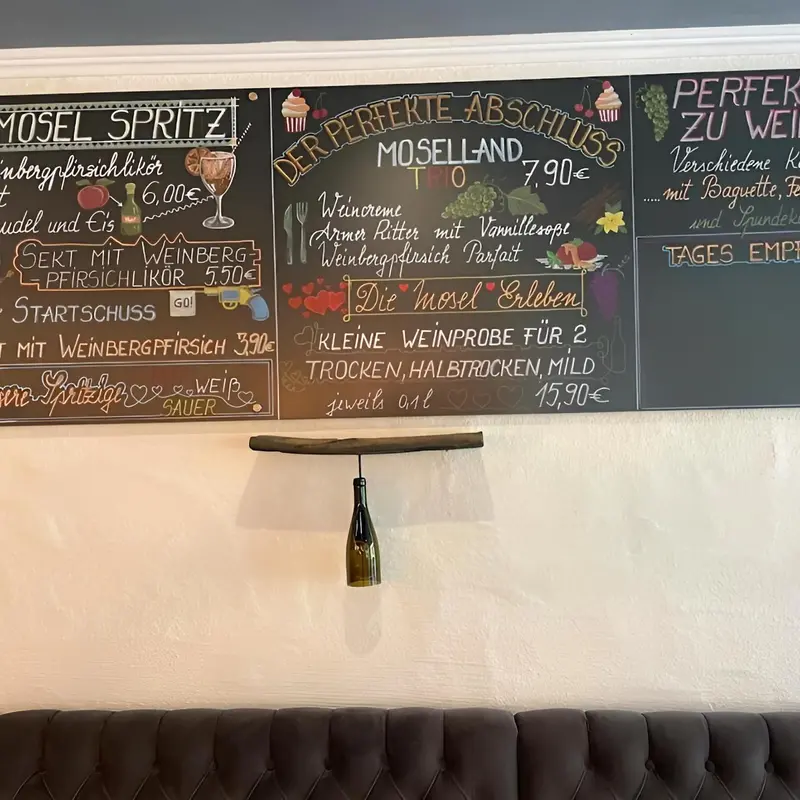 MOSEL SPRITZ
nbergpfirsichlikör
6,00€
udel und Eis
SEKT MIT WEINBERG-
-PFIRSICHLIKÖR 5,50€
STARTSCHUSS GO!
MIT WEINBERGPFIRSICH 3,90€
sere Spritzige WEIß
SAUER
DER PERFEKTE ABSCHLUSS
MOSELLAND
TRIO 7,90€
Weincreme
Armer Ritter mit Vannillesoße
Weinbergpfirsich Parfait
Die Mosel Erleben
KLEINE WEINPROBE FÜR 2
TROCKEN, HALBTROCKEN, MILD
jeweils 0,1l 15,90€
PERFEK
ZU WEI
Verschiedene Kä
..... mit Baguette, Fe
und Spundek
TAGES EMPF